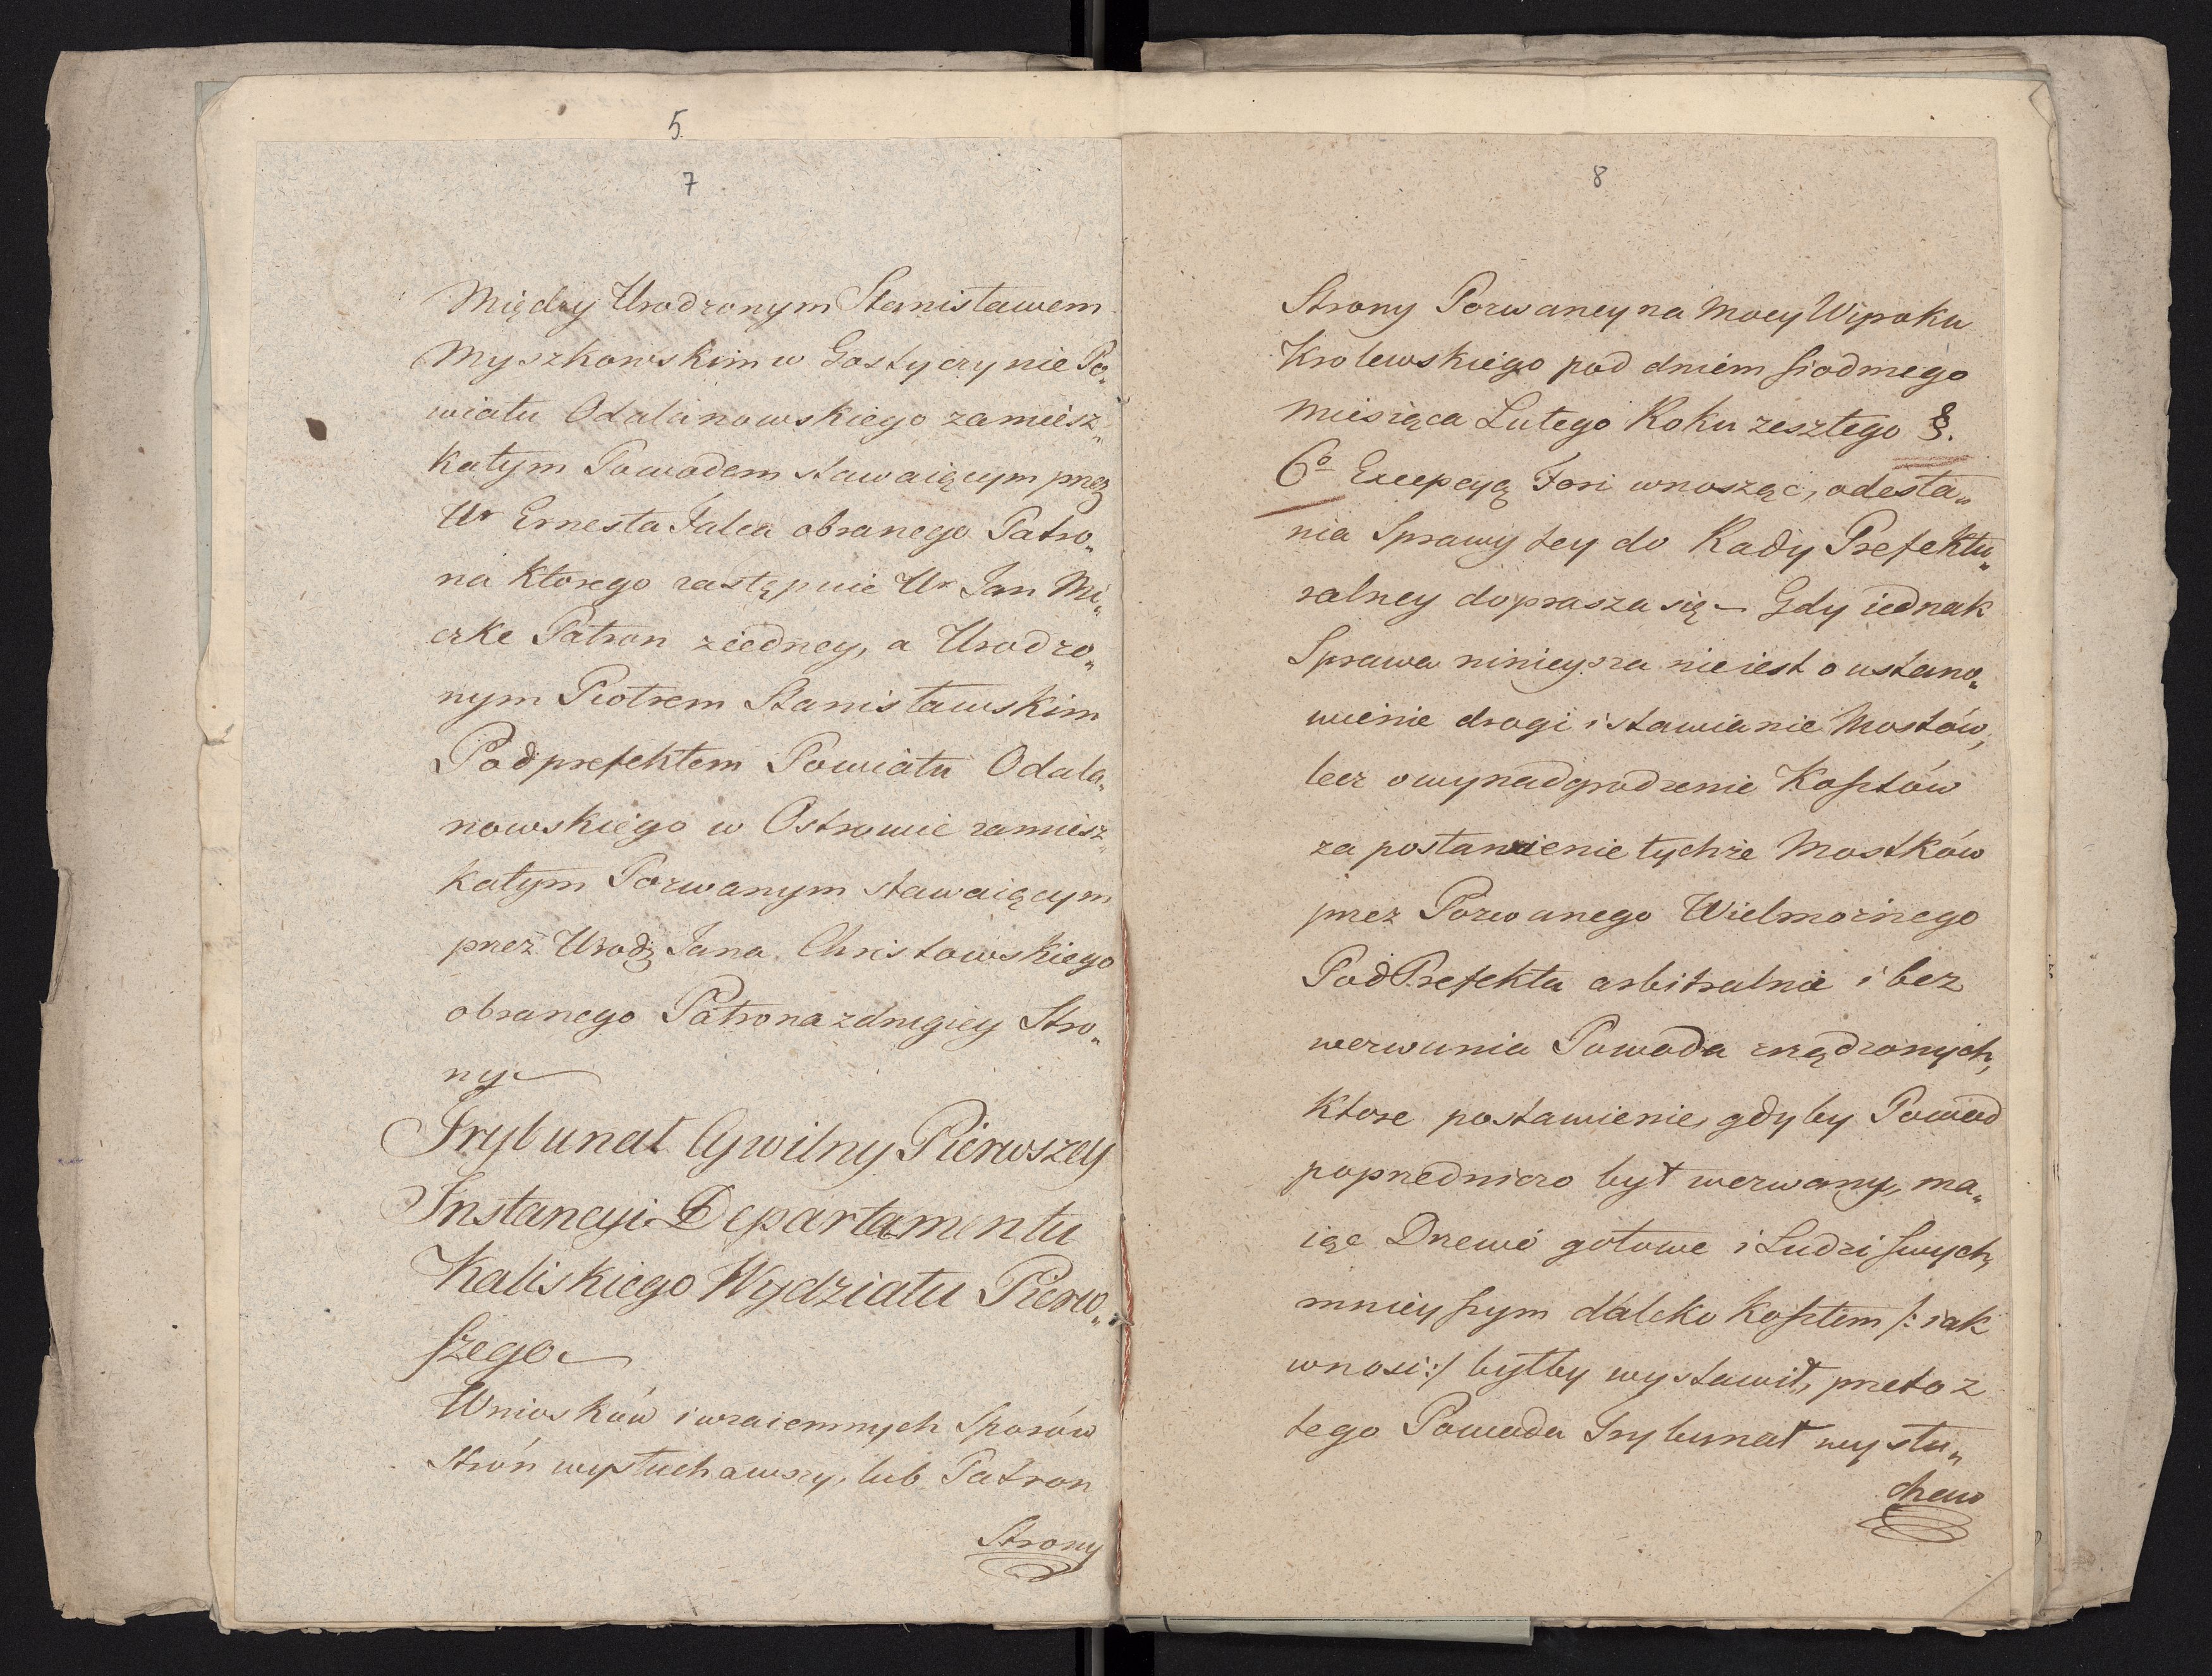 5.
7
Między Urodzonym Stanisławem
Myszkowskim w Gostyczynie Po„
wiatu Odalanowskiego zamiesz„
kałym Powodem stawaiącym przez
Ur Ernesta Falca obranego Patro„
na ktorego zastępuie Ur Jan Mi„
czke Patron ziedney, a Urodzo„
nym Piotrem Stanisławskim
Podprefektem Powiatu Odala„
nowskiego w Ostrowie zamiesz„
kałym Pozwanym stawaiącym
przez Urodz Jana Chrystowskiego
obranego Patrona zdrugiey Stro„
ny
Trybunał Cywilny Pierwszey
Instancyi Departamentu
Kaliskiego Wydziału Pierw„
szego
Wniosków i wzaiemnych Sporów
Strón wysłuchawszy, lub Patron
Strony
8
Strony Pozwaney na Mocy Wyroku
Krolewskiego pod dniem siodmego
Miesiąca Lutego Roku zeszłego §.
6o Excepcyą Fori wnosząc, odesła„
nia Sprawy tey do Rady Prefektu„
ralney doprasza się – Gdy iednak
Sprawa ninieysza nie iest o ustano„
wienie drogi i stawianie Mostów,
lecz o wynadgrodzenie Kosztów
za postawienie tychże Mostków
przez Pozwanego Wielmożnego
PodPrefekta arbitralnie i bez
wezwania Powoda rządzonych,
ktore postawienie, gdyby Powod
poprzedniczo był wezwany, ma„
iąc Drzewo gotowe i Ludzi swych,
mnieyszym daleko kosztem /: iak
wnosi :/ byłby wystawił, przeto z
tego Powodu Trybunał wysłu„
chaw